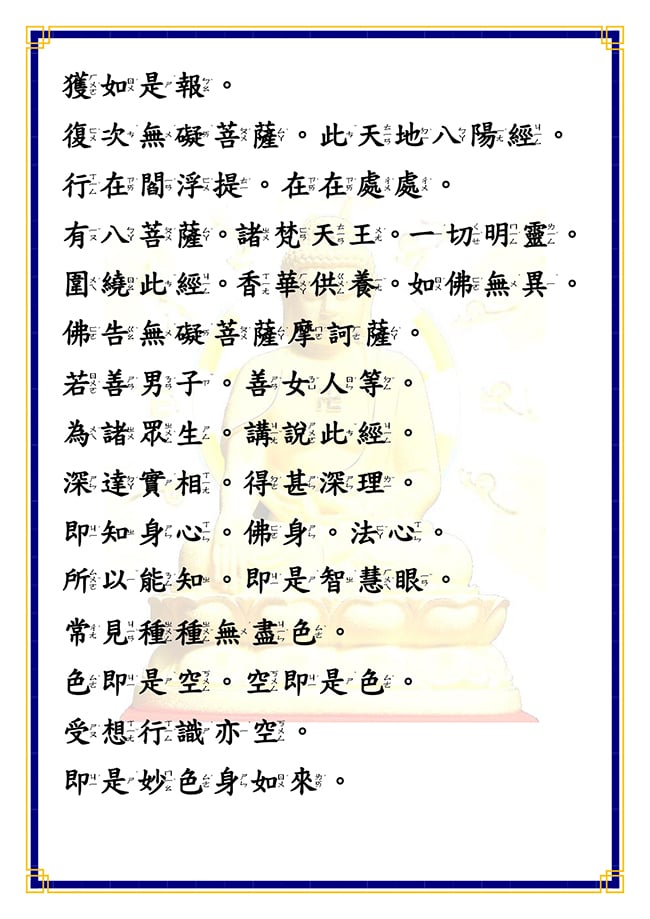 獲如是報。
復次無礙菩薩。此天地八陽經。
行在閻浮提。在在處處。
有八菩薩。諸梵天王。一切明靈。
圍繞此經。香華供養。如佛無異。
佛告無礙菩薩摩訶薩。
若善男子。善女人等。
為諸眾生。講說此經。
深達實相。得甚深理。
即知身心。佛身。法心。
所以能知。即是智慧眼。
常見種種無盡色。
色即是空。空即是色。
受想行識亦空。
即是妙色身如來。